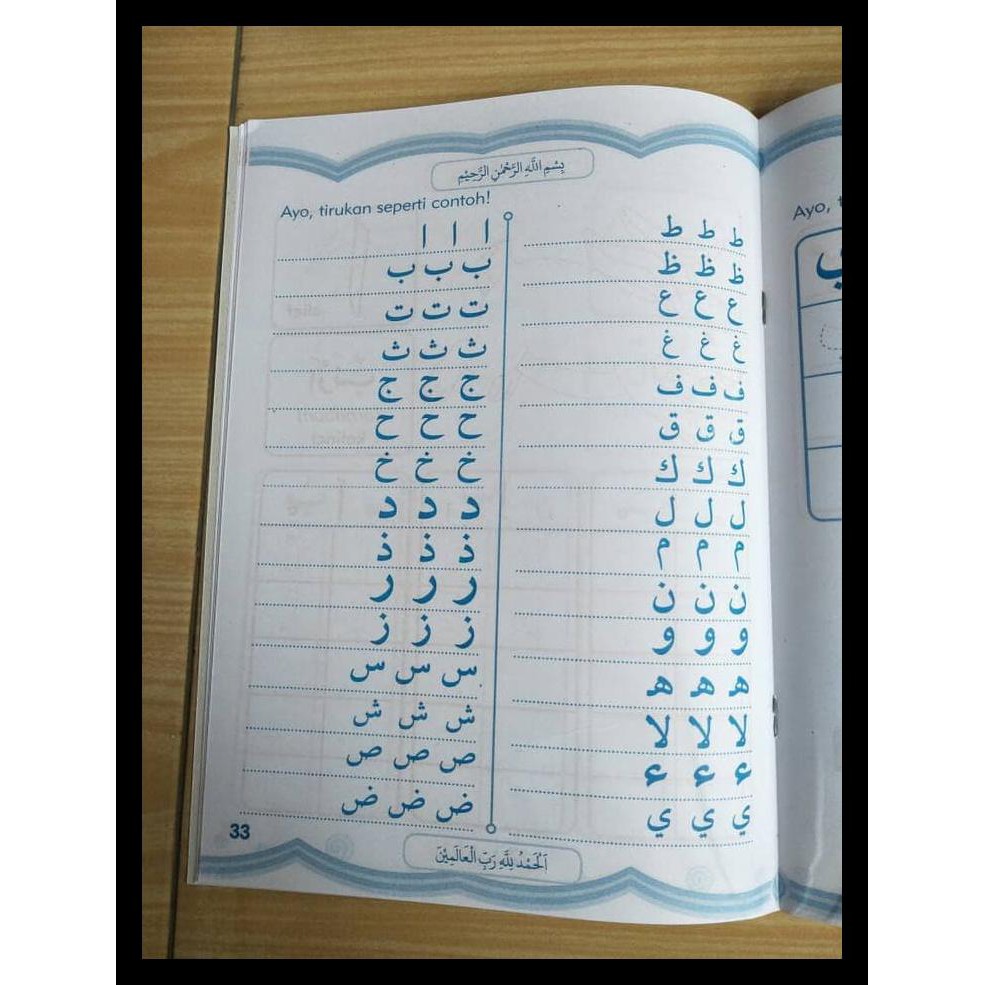 بِسْمِ اللَّهِ الرَّحْمٰنِ الرَّحِيْمِ
Ayo, tirukan seperti contoh!
ا ا ا
ب ب ب
ت ت ت
ث ث ث
ج ج ج
ح ح ح
خ خ خ
د د د
ذ ذ ذ
ر ر ر
ز ز ز
س س س
ش ش ش
ص ص ص
ض ض ض
ط ط ط
ظ ظ ظ
ع ع ع
غ غ غ
ف ف ف
ق ق ق
ك ك ك
ل ل ل
م م م
ن ن ن
و و و
ه ه ه
لا لا لا
ء ء ء
ي ي ي
33
اَلْحَمْدُ لِلَّهِ رَبِّ الْعَالَمِيْنَ
Ayo,